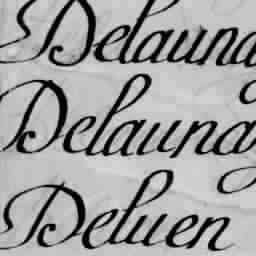 Delaung
Delaung
Deluen